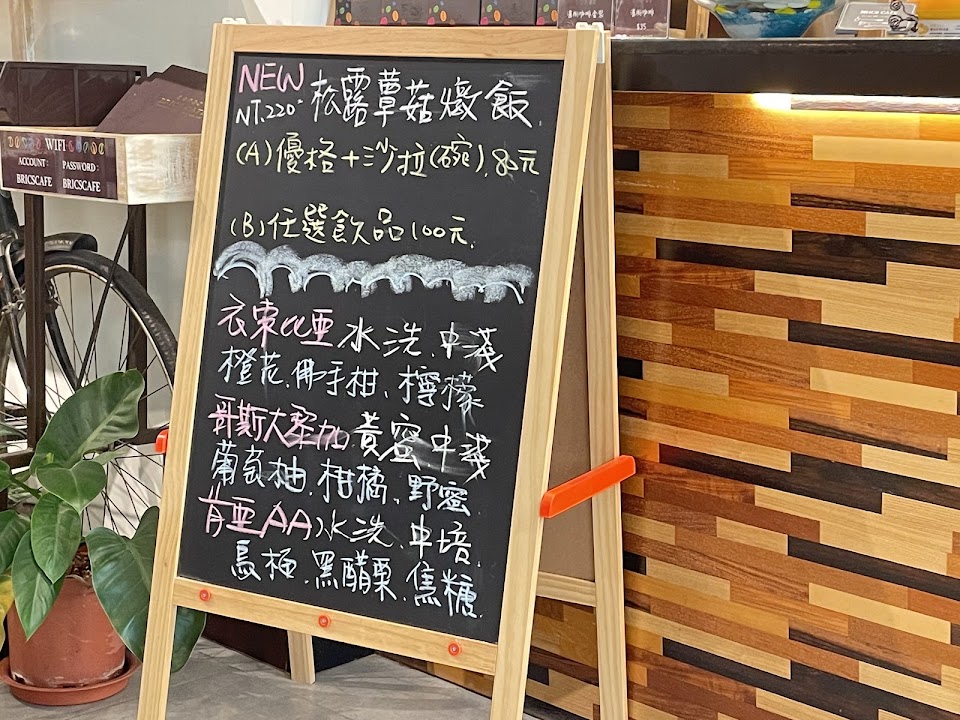 NEW 松露蕈菇燉飯
NT.220
(A) 優格+沙拉(碗), 80元
(B) 任選飲品100元.
衣索比亞 水洗.中淺
橙花.佛手柑、檸檬
哥斯大黎加.黃蜜中淺
葡萄柚.柑橘、野蜜
肯亞AA 水洗.中培.
烏梅.黑醋栗.焦糖.
WIFI
ACCOUNT: PASSWORD:
BRICSCAFE BRICSCAFE
$35